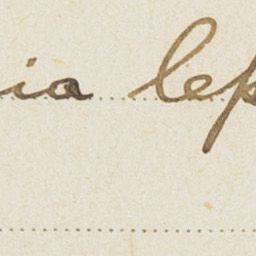 ia lep